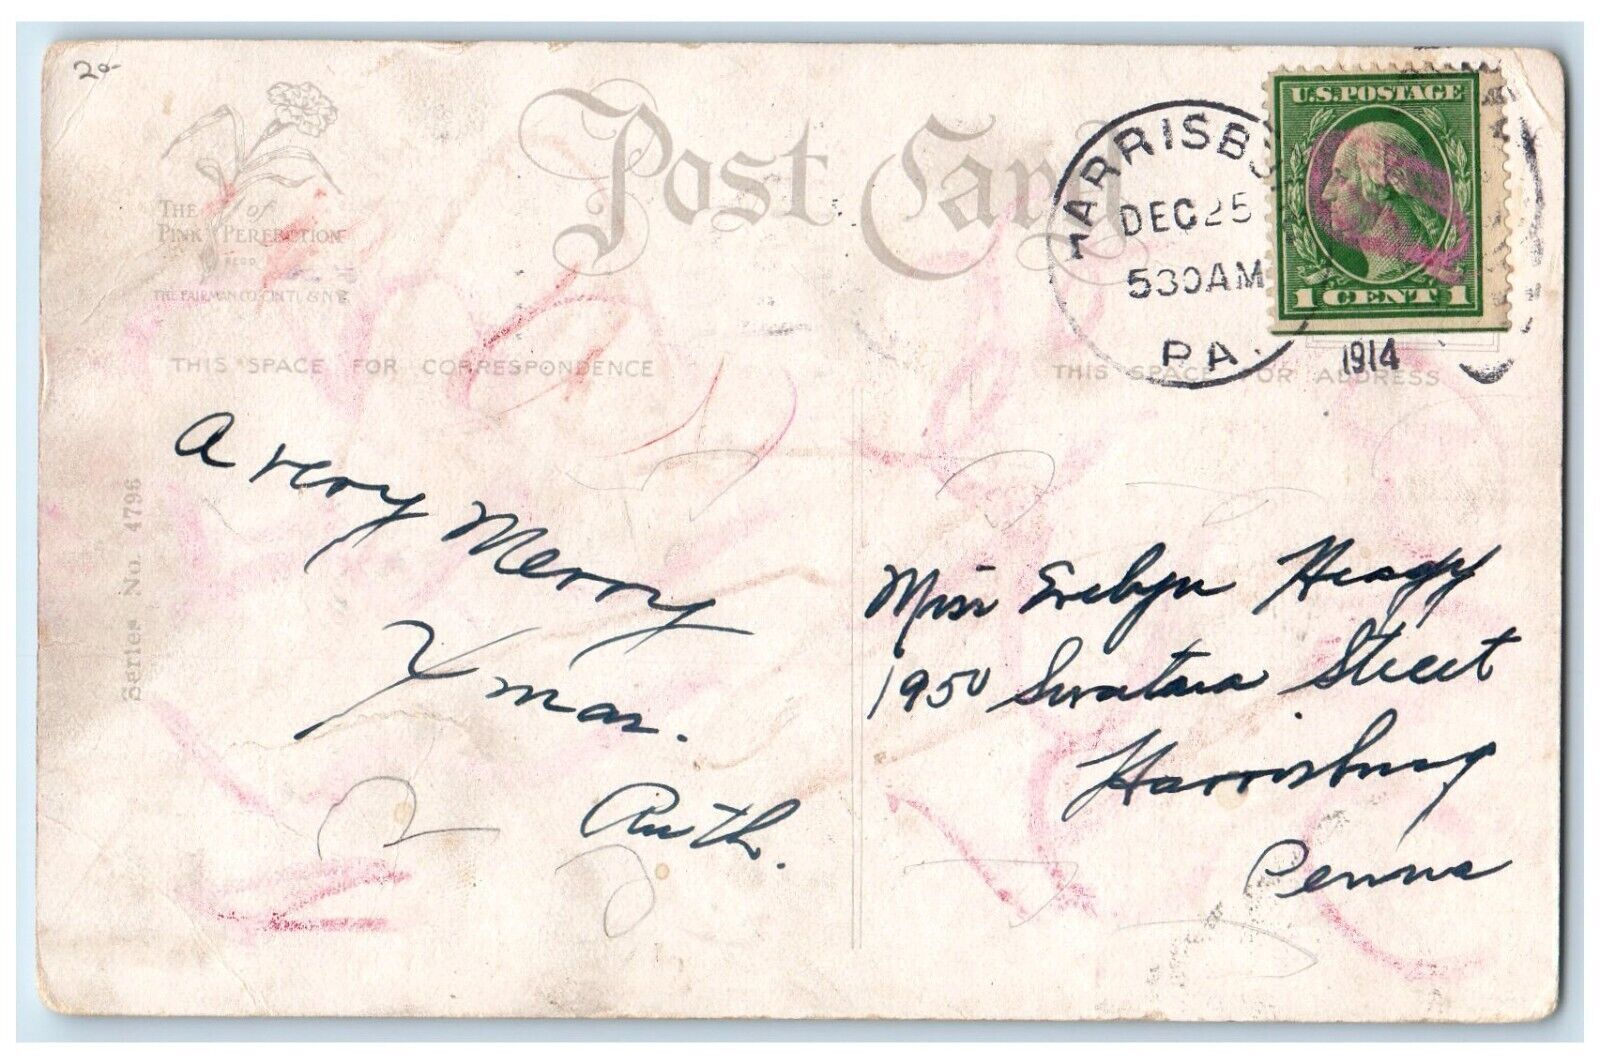 20-
THE of
PINK PERFECTION
THE FAIRMAN CO. CIN'TI. & N.Y.
Post Card
HARRISBURG
DEC 25
530AM
PA.
1914
U.S. POSTAGE
1 CENT 1
THIS SPACE FOR CORRESPONDENCE
THIS SPACE FOR ADDRESS
Series No. 4796
A very Merry
Xmas.
Ruth.
Miss Evelyn Heagy
1950 Swatara Street
Harrisburg
Penna